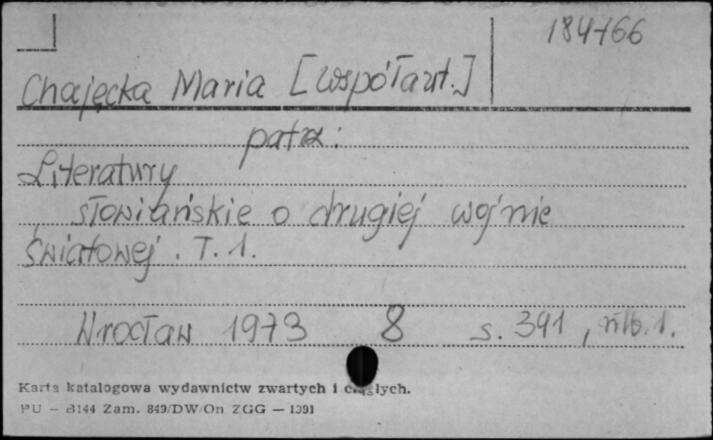 184466
Chajęcka Maria [współaut.]
patrz:
Literatury
słowiańskie o drugiej wojnie
światowej. T. 1.
Wrocław 1973 8 s. 391, nlb. 1.
Karta katalogowa wydawnictw zwartych i ciągłych.
PU – B144 Zam. 849/DW/On ZGG — 1391